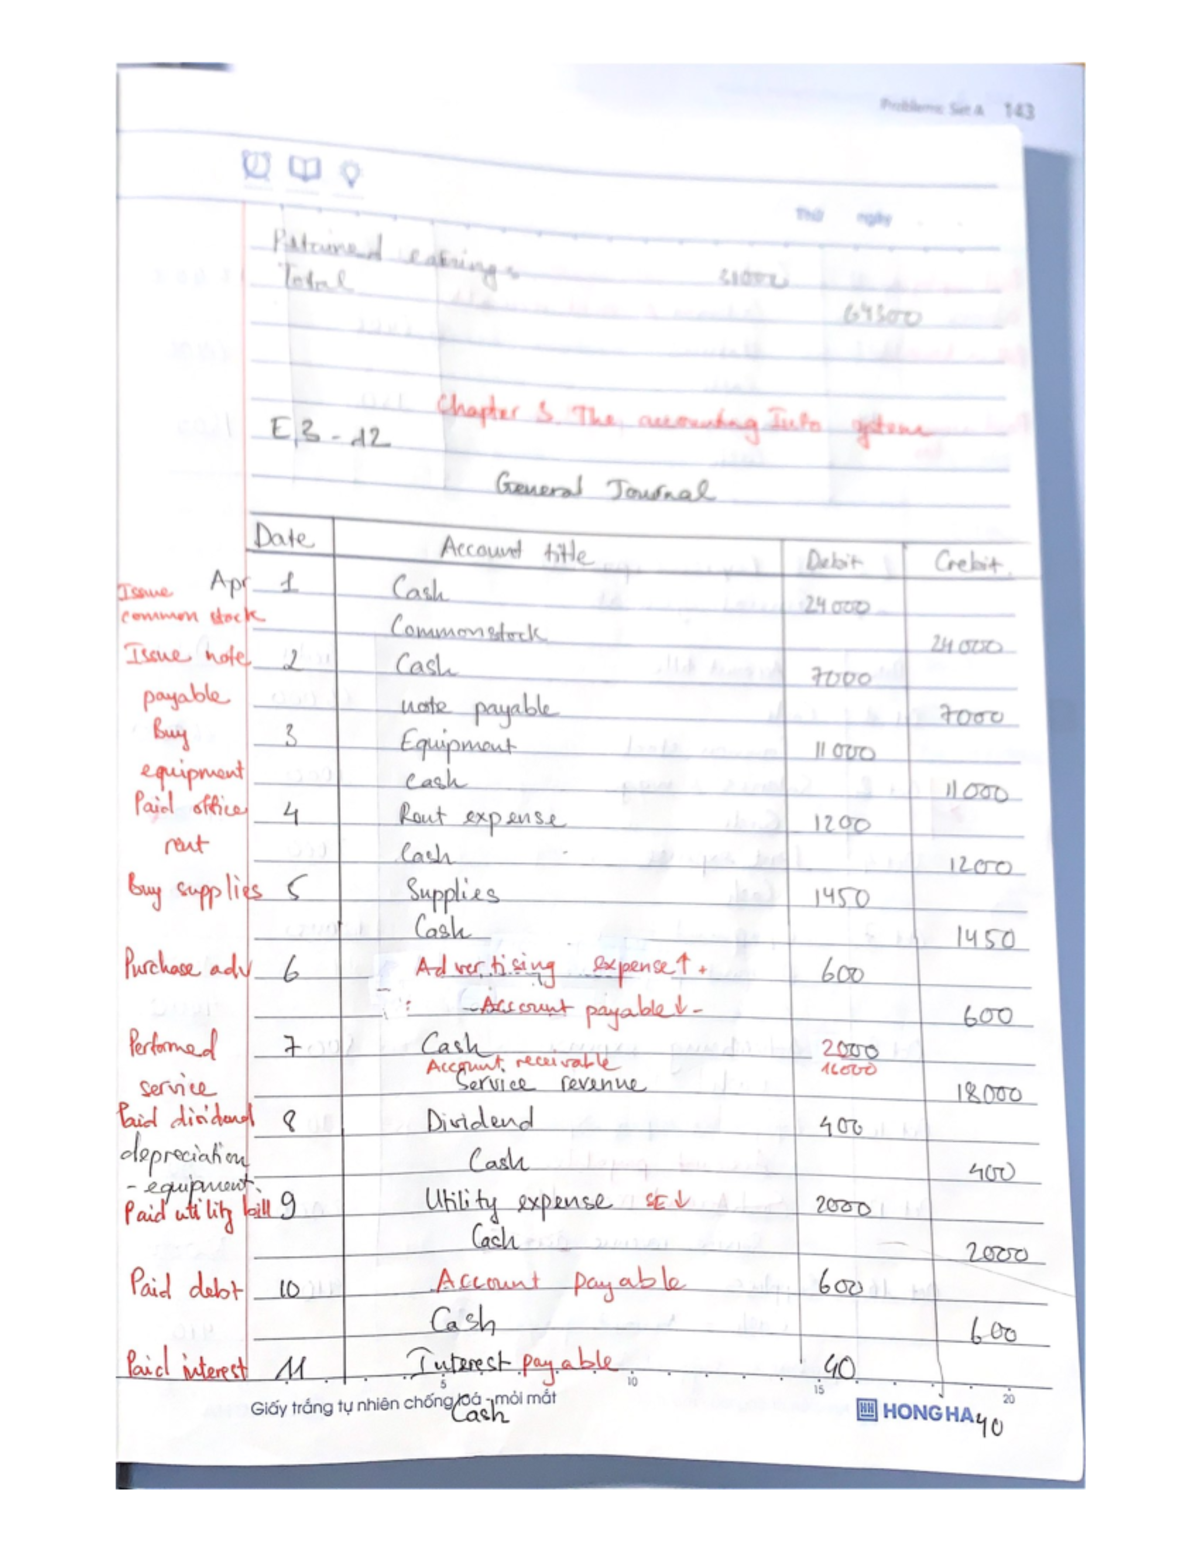 Problems: Set A 143
Thứ ngày
Retained earnings 31000
Total 64500
Chapter 3. The accounting Info system
E3-12
General Journal
Date Account title Debit Crebit
Issue Apr 1 Cash 24000
common stock Common stock 24000
Issue note 2 Cash 7000
payable note payable 7000
Buy 3 Equipment 11000
equipment Cash 11000
Paid office 4 Rent expense 1200
rent Cash 1200
Buy supplies 5 Supplies 1450
Cash 1450
Purchase adv 6 Advertising expense↑ + 600
- Account payable↓ - 600
Performed 7 Cash 2000
Account receivable 16000
service Service revenue 18000
Paid dividend 8 Dividend 400
depreciation Cash 400
- equipment.
Paid utility bill 9 Utility expense SE↓ 2000
Cash 2000
Paid debt 10 Account payable 600
Cash 600
Paid interest 11 Interest payable 40
5 10 15 20
Giấy trắng tự nhiên chống loá - mỏi mắt HH HONG HA
Cash 40